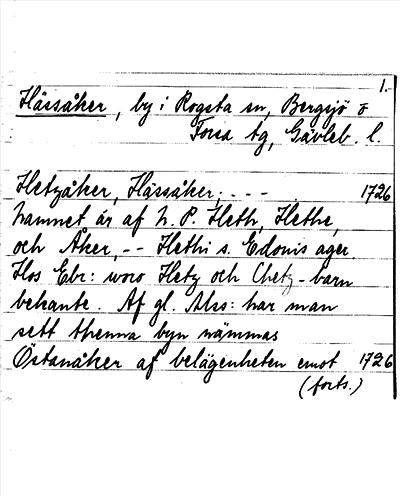 1.
Hässåker, by i Rogsta sn, Bergsjö o
Forsa tg, Gävleb. l.
Hetzåker, Hässåker, - - - 1726
Namnet är af N. P. Heth, Hethe,
och Åker, -- Hethi s. Edonis ager.
Hos Ebr: woro Hetz och Chetz-barn
bekante. Af gl. Alss: har man
sett thenna byn nämmas
Östanåker af belägenheten emot 1726
(forts.)